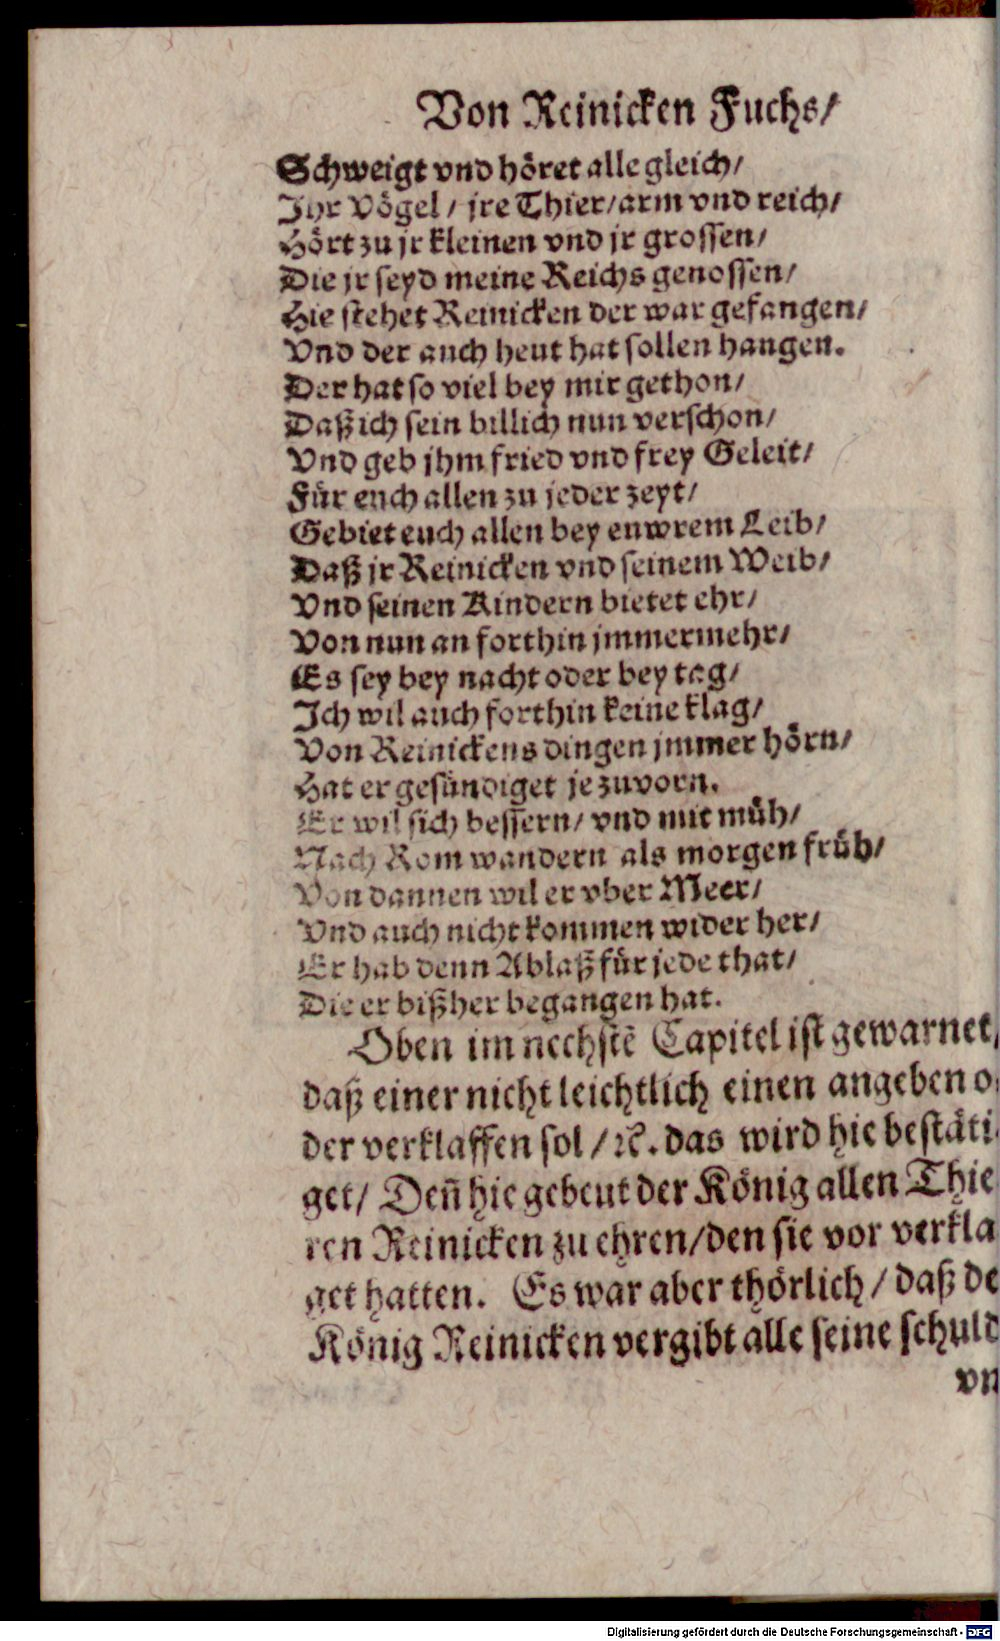 Von Reinicken Fuchs/
Schweigt vnd höret alle gleich/
Ihr Vögel/ jre Thier/arm vnd reich/
Hört zu jr kleinen vnd jr grossen/
Die jr seyd meine Reichs genossen/
Hie stehet Reinicken der war gefangen/
Vnd der auch heut hat sollen hangen.
Der hat so viel bey mir gethon/
Daß ich sein billich nun verschon/
Vnd geb jhm fried vnd frey Geleit/
Für euch allen zu jeder zeyt/
Gebiet euch allen bey euwrem Leib/
Daß jr Reinicken vnd seinem Weib/
Vnd seinen Kindern bietet ehr/
Von nun an forthin jmmermehr/
Es sey bey nacht oder bey tag/
Ich wil auch forthin keine klag/
Von Reinickens dingen jmmer hörn/
Hat er gesündiget je zuvorn.
Er wil sich bessern/ vnd mit müh/
Nach Rom wandern als morgen früh/
Von dannen wil er vber Meer/
Vnd auch nicht kommen wider her/
Er hab denn Ablaß für jede that/
Die er bißher begangen hat.
Oben im nechstē Capitel ist gewarnet,
daß einer nicht leichtlich einen angeben o
der verklaffen sol/ ꝛc. das wird hie bestäti
get/ Deñ hie gebeut der König allen Thie
ren Reinicken zu ehren/den sie vor verkla
get hatten. Es war aber thörlich/ daß de
König Reinicken vergibt alle seine schuld
vn
Digitalisierung gefördert durch die Deutsche Forschungsgemeinschaft - DFG